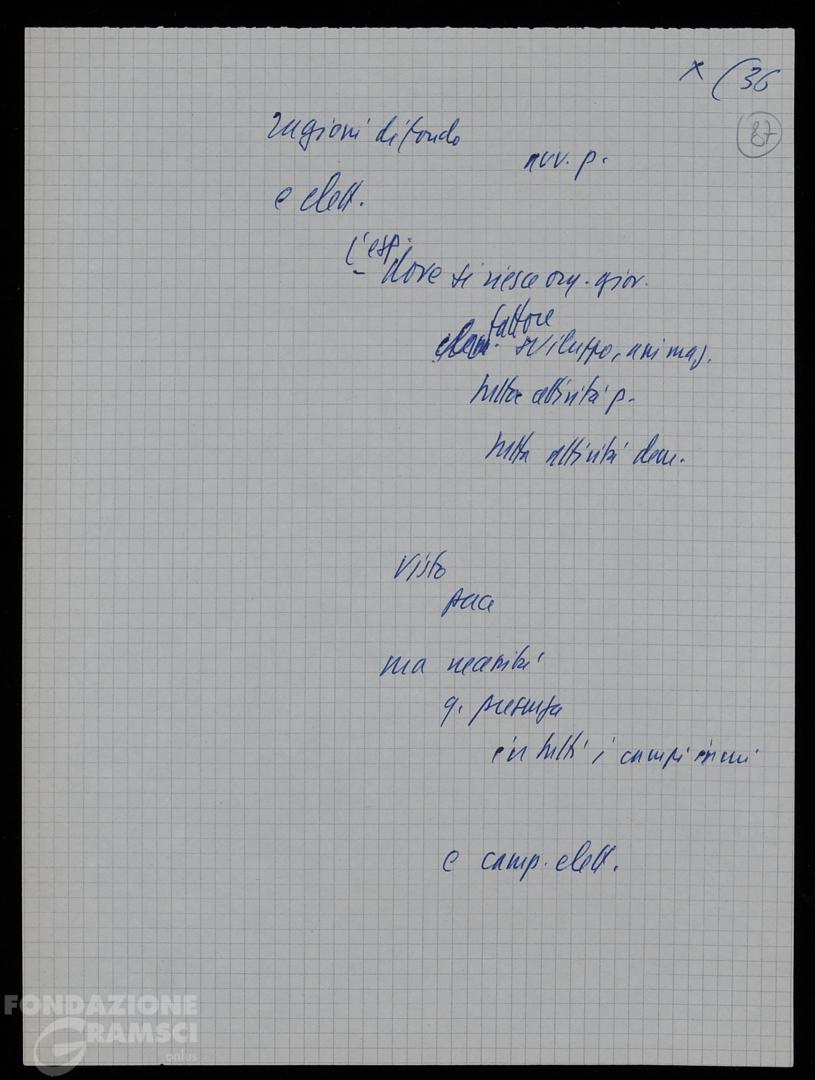 x (36
87
ragioni di fondo
avv. p.
e elett.
L'esp.
– dove si riesce org. giov.
fattore
elem. sviluppo, animaz.
tutta attività p.
tutta attività dem.
visto
pace
ma necessità
q. presenza
in tutti i campi
e camp. elett.
FONDAZIONE
GRAMSCI
onlus